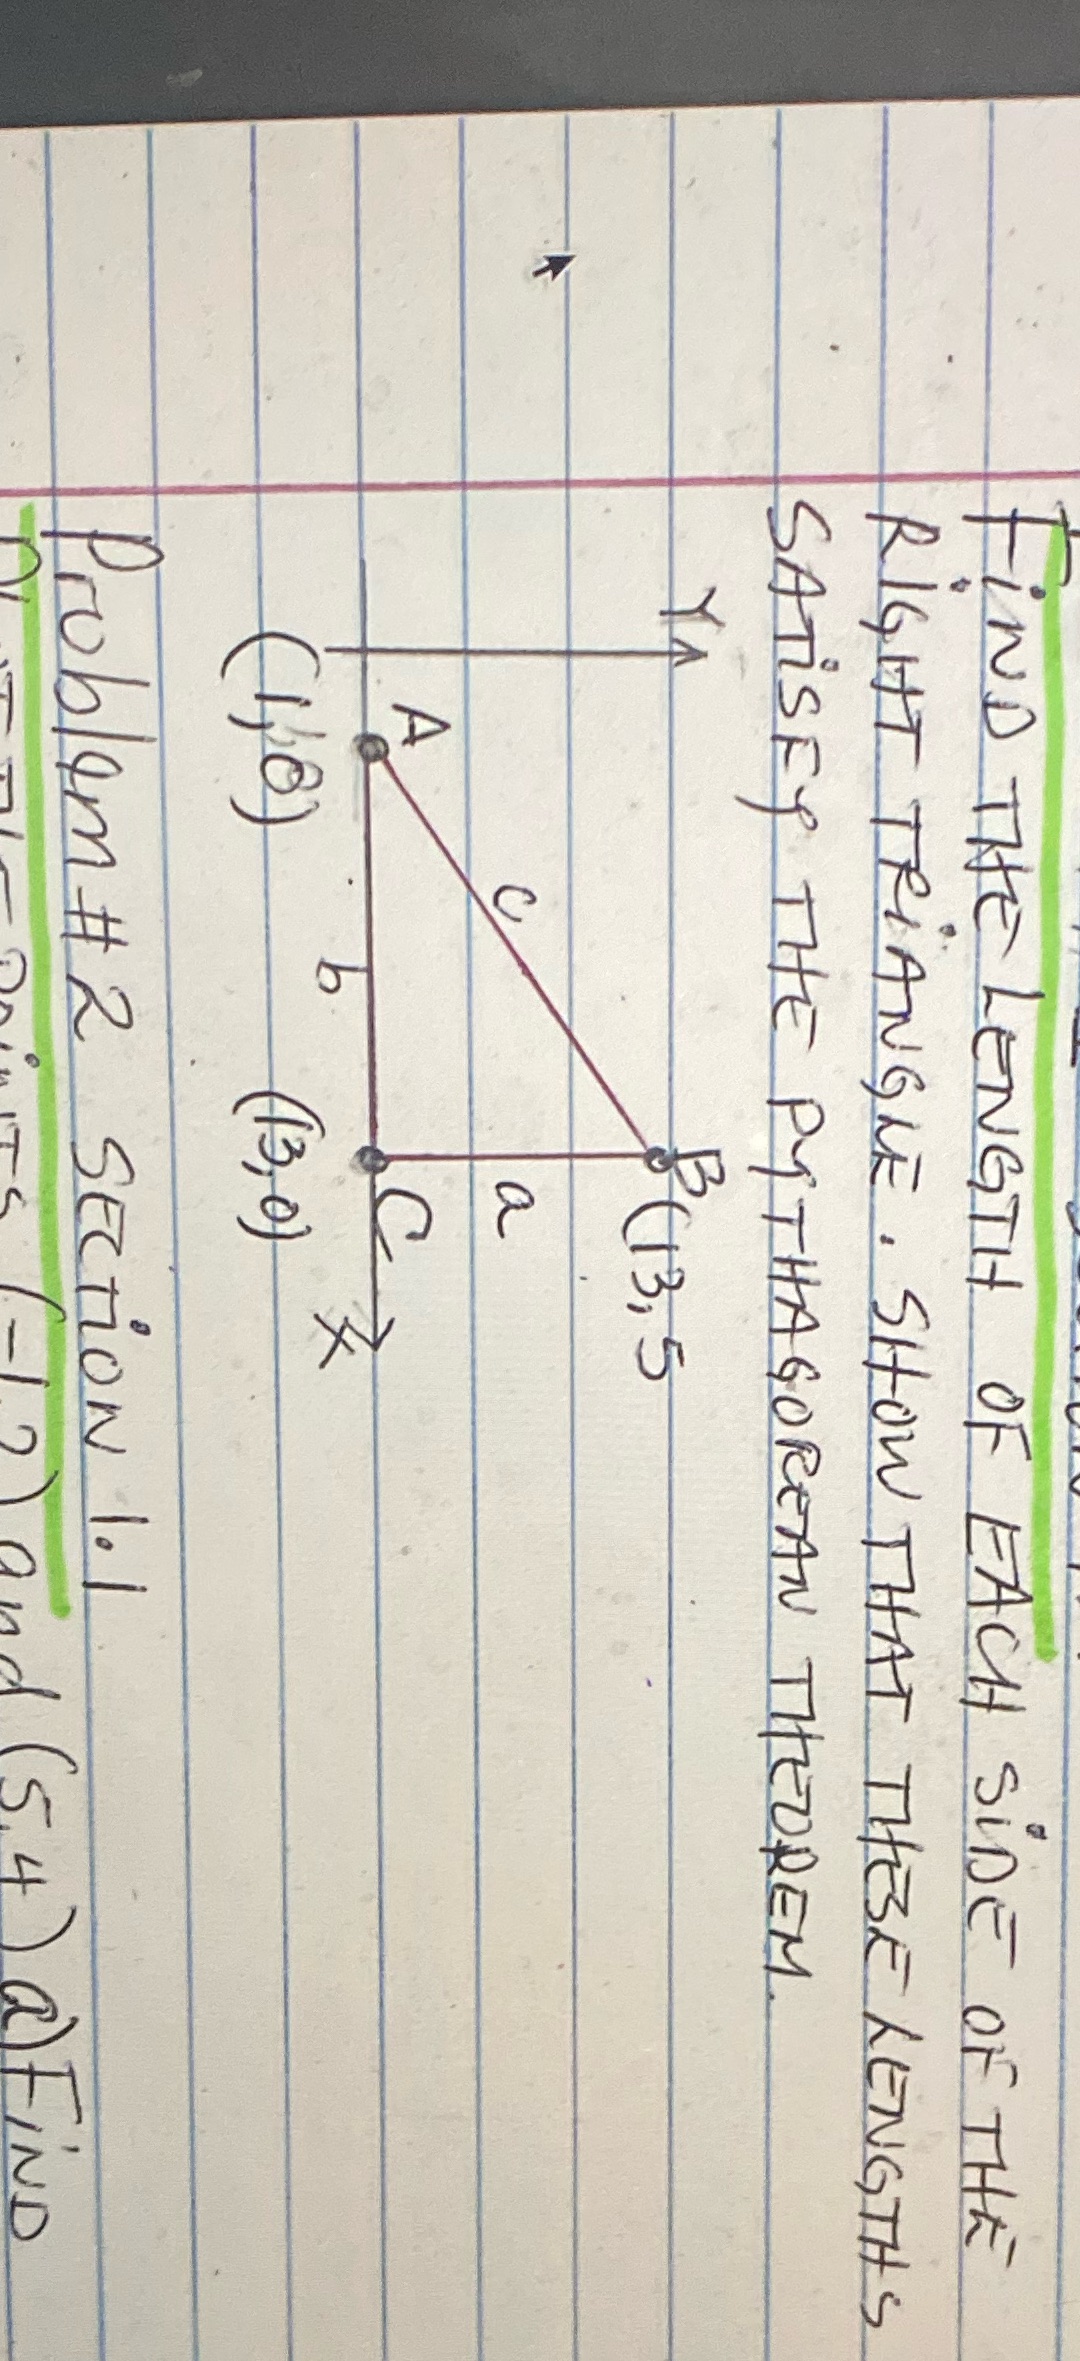 FIND THE LENGTH OF EACH SIDE OF THE
RIGHT TRIANGLE. SHOW THAT THESE LENGTHS
SATISFY THE PYTHAGOREAN THEOREM.
Y
B (13,5
A
c
a
C
b
X
(1,0)
(13,0)
Problem #2 SECTION 1.1
POINTS (-1,2) and (5,4) a) FIND